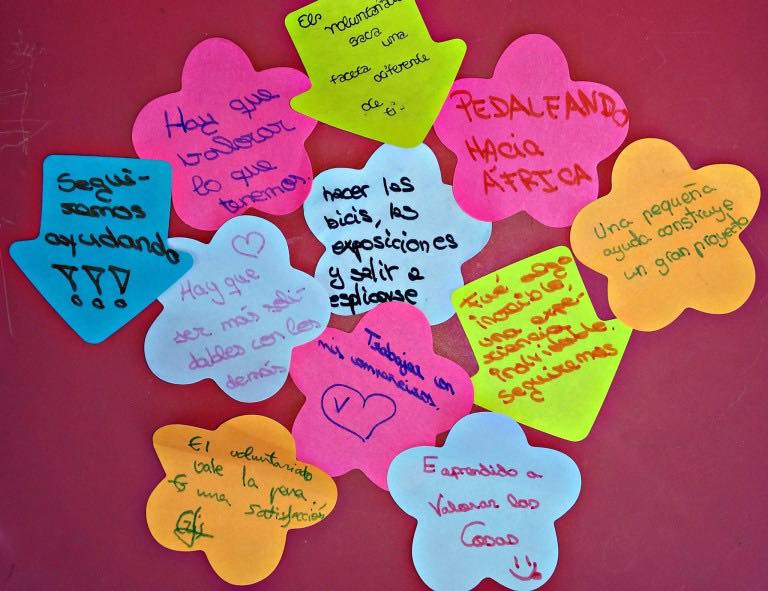 El voluntariado
saca una
faceta diferente
de ti.
Hay que
valorar
lo que
tenemos.
PEDALEANDO
HACIA
ÁFRICA
Segui-
ramos
ayudando
!!!
hacer las
bicis, las
exposiciones
y salir a
esplicarse
Una pequeña
ayuda construye
un gran proyecto
Hay que
ser más soli-
dables con los
demás
Fué algo
increible,
una expe-
riencia
inolvidable.
seguiremos
Trabajar con
mis compañeiros.
V
El voluntariado
vale la pena.
Es una satisfacción
E aprendido a
Valorar las
Cosas